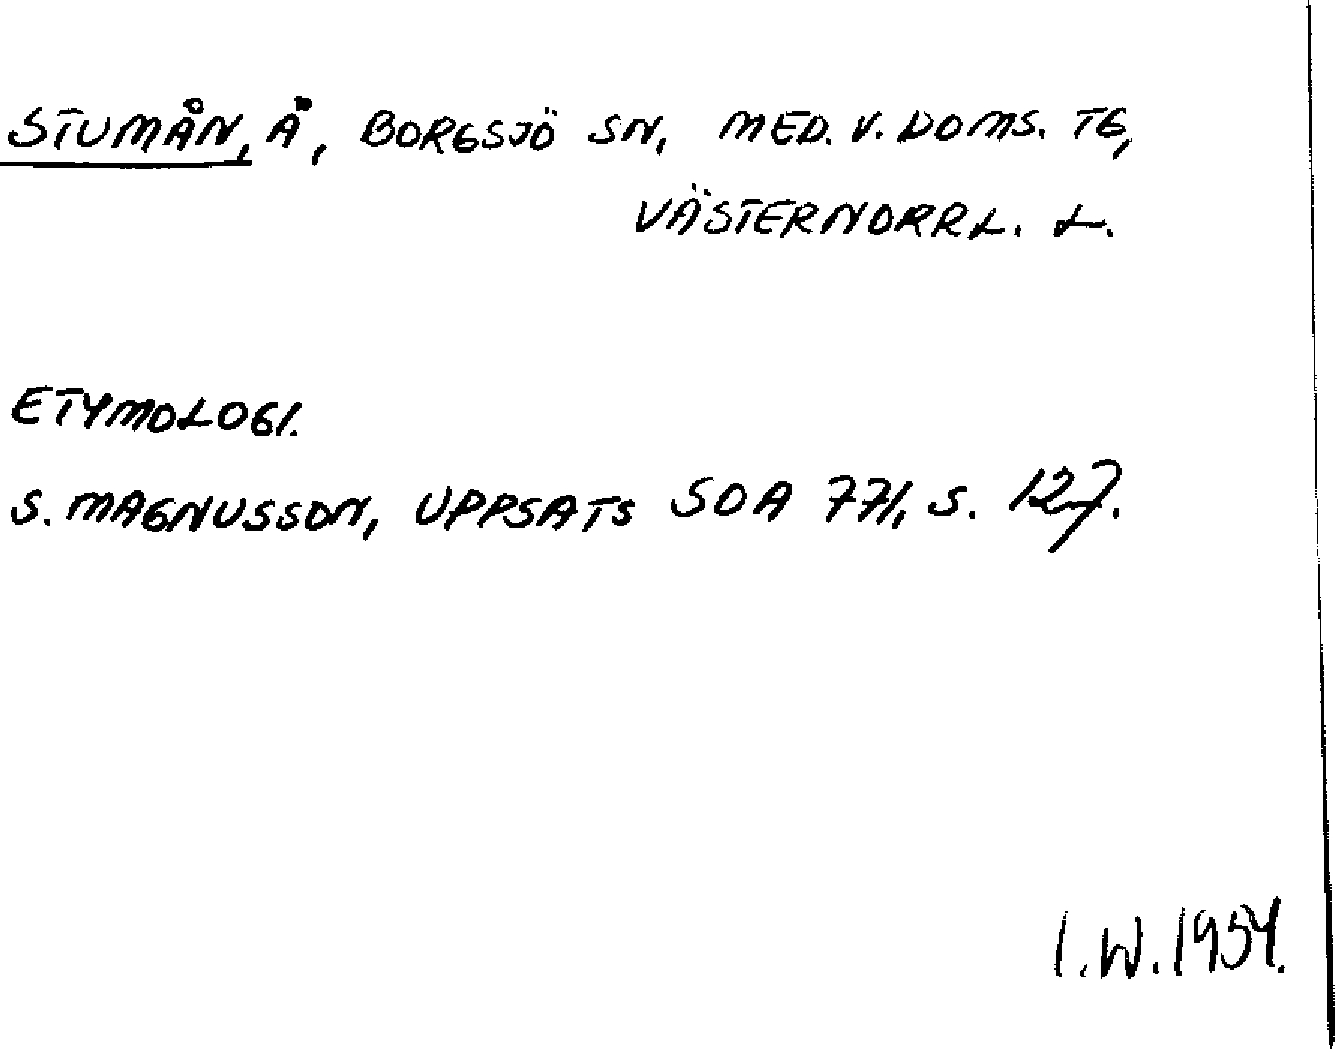 STUMÅN, Å, BORGSJÖ SN, MED. V. DOMS. TG,
VÄSTERNORRL. L.
ETYMOLOGI.
S. MAGNUSSON, UPPSATS SOA 771, S. 127.
I.W. 1954.